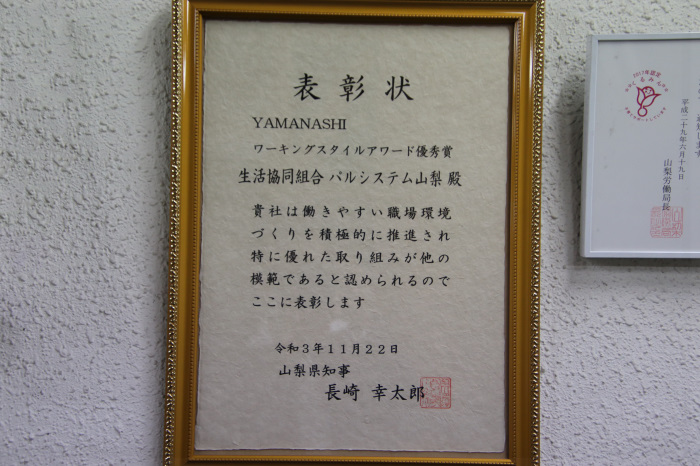 表彰状
YAMANASHI
ワーキングスタイルアワード優秀賞
生活協同組合 パルシステム山梨 殿
貴社は働きやすい職場環境
づくりを積極的に推進され
特に優れた取り組みが他の
模範であると認められるので
ここに表彰します
令和3年11月22日
山梨県知事
長崎 幸太郎
平成二十九年六月十九日
山梨労働局長